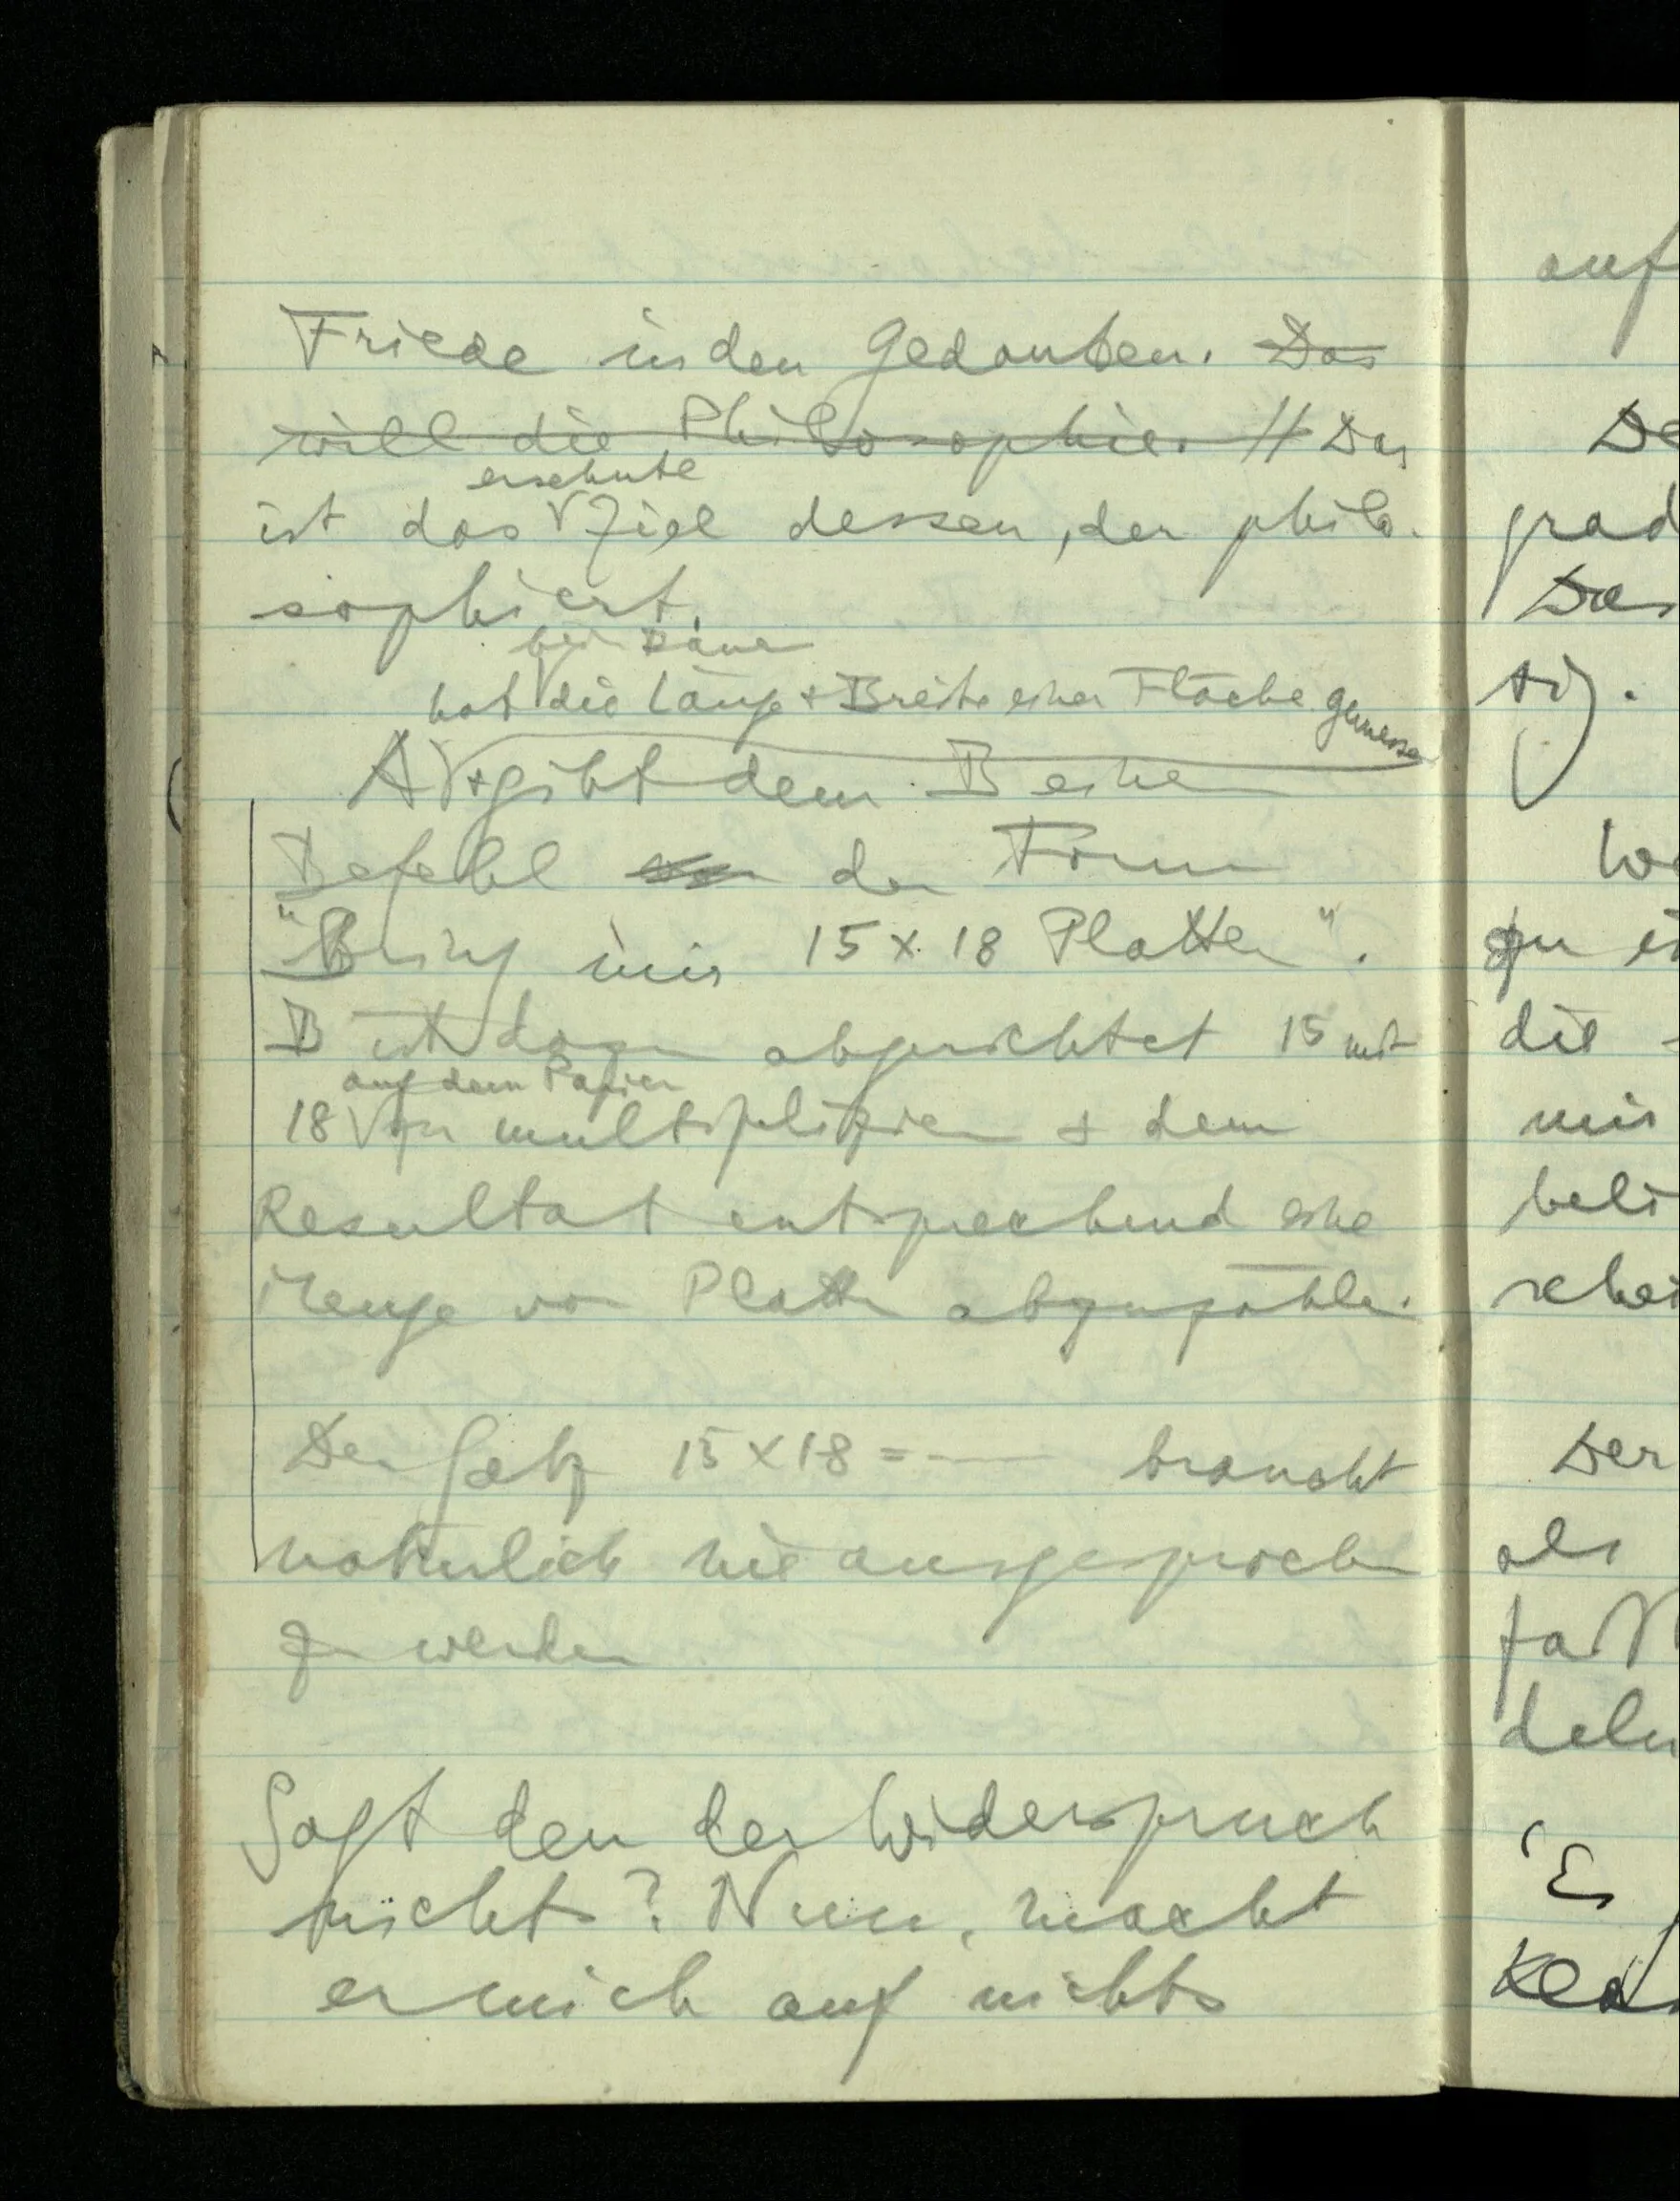 Friede in den Gedanken. Das
will die Philosophie. // Das
ersehnte
ist das Ziel dessen, der philo-
sophiert.
beim Bauen
hat die Länge + Breite einer Fläche gemessen
A + gibt dem B einen
Befehl der Form
"Bring mir 15 x 18 Platten".
B ist dazu abgerichtet 15 mit
auf dem Papier
18 zu multiplizieren + dem
Resultat entsprechend eine
Menge von Platten abzuzählen.
Der Satz 15 x 18 = ---- braucht
natürlich nie ausgesprochen
zu werden
Sagt denn der Widerspruch
nichts? Nun, macht
er mich auf nichts
auf
grad
Das
tig.
zu
die
mir
Der
als
"Es